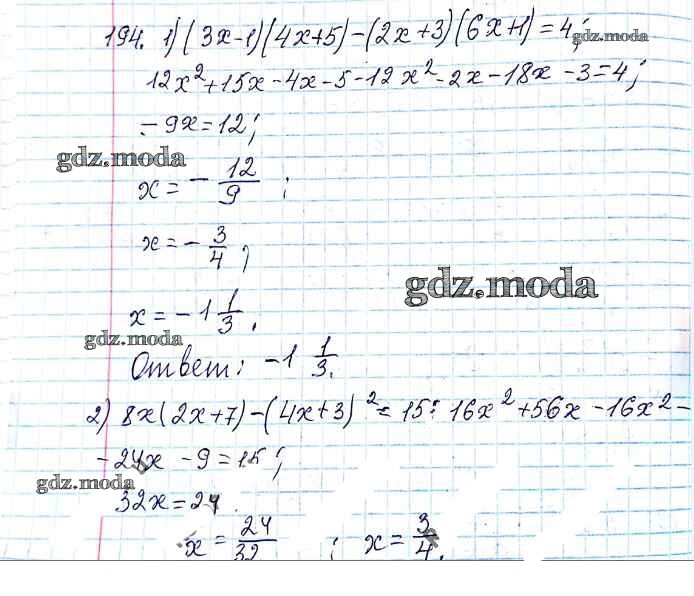 194. 1) (3x-1)(4x+5)-(2x+3)(6x+1)=4;
gdz.moda
12x²+15x-4x-5-12x²-2x-18x-3=4;
-9x=12;
gdz.moda
x=-12/9;
x=-3/4;
gdz.moda
x=-1 1/3.
gdz.moda
Ответ: -1 1/3.
2) 8x(2x+7)-(4x+3)²=15: 16x²+56x-16x²-
-24x-9=15;
gdz.moda
32x=24.
x=24/32; x=3/4.